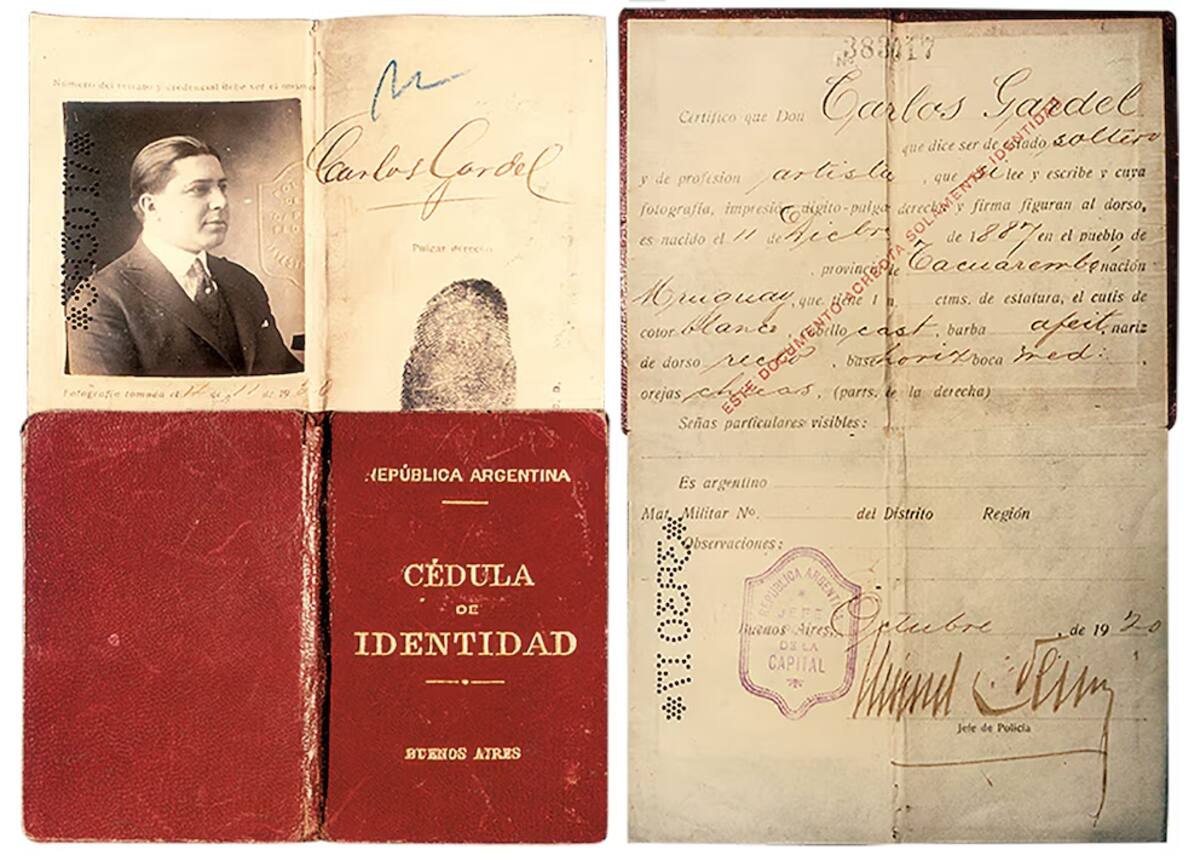 Número del retrato y credencial debe ser el mismo
Carlos Gardel
Pulgar derecho
Fotografía tomada el de 11 de 19
REPÚBLICA ARGENTINA
CÉDULA
DE
IDENTIDAD
BUENOS AIRES
No. 383017
Certifico que Don Carlos Gardel
que dice ser de estado soltero
y de profesión artista, que si lee y escribe y cuya
fotografía, impresión dígito-pulgar derecha y firma figuran al dorso,
es nacido el 11 de Dicbre de 1887 en el pueblo de
, provincia de Tacuarembó nación
Uruguay, que tiene 1 m. ctms. de estatura, el cutis de
color blanco, cabello cast. barba afeit. nariz
de dorso recto, base horiz boca med:
orejas chicas, (parts. de la derecha)
ESTE DOCUMENTO ACREDITA SOLAMENTE IDENTIDAD
Señas particulares visibles:
Es argentino
Mat. Militar No. del Distrito Región
Observaciones:
REPÚBLICA ARGENTINA
JEFE
DE LA
CAPITAL
Buenos Aires, Octubre, de 1920
Jefe de Policía